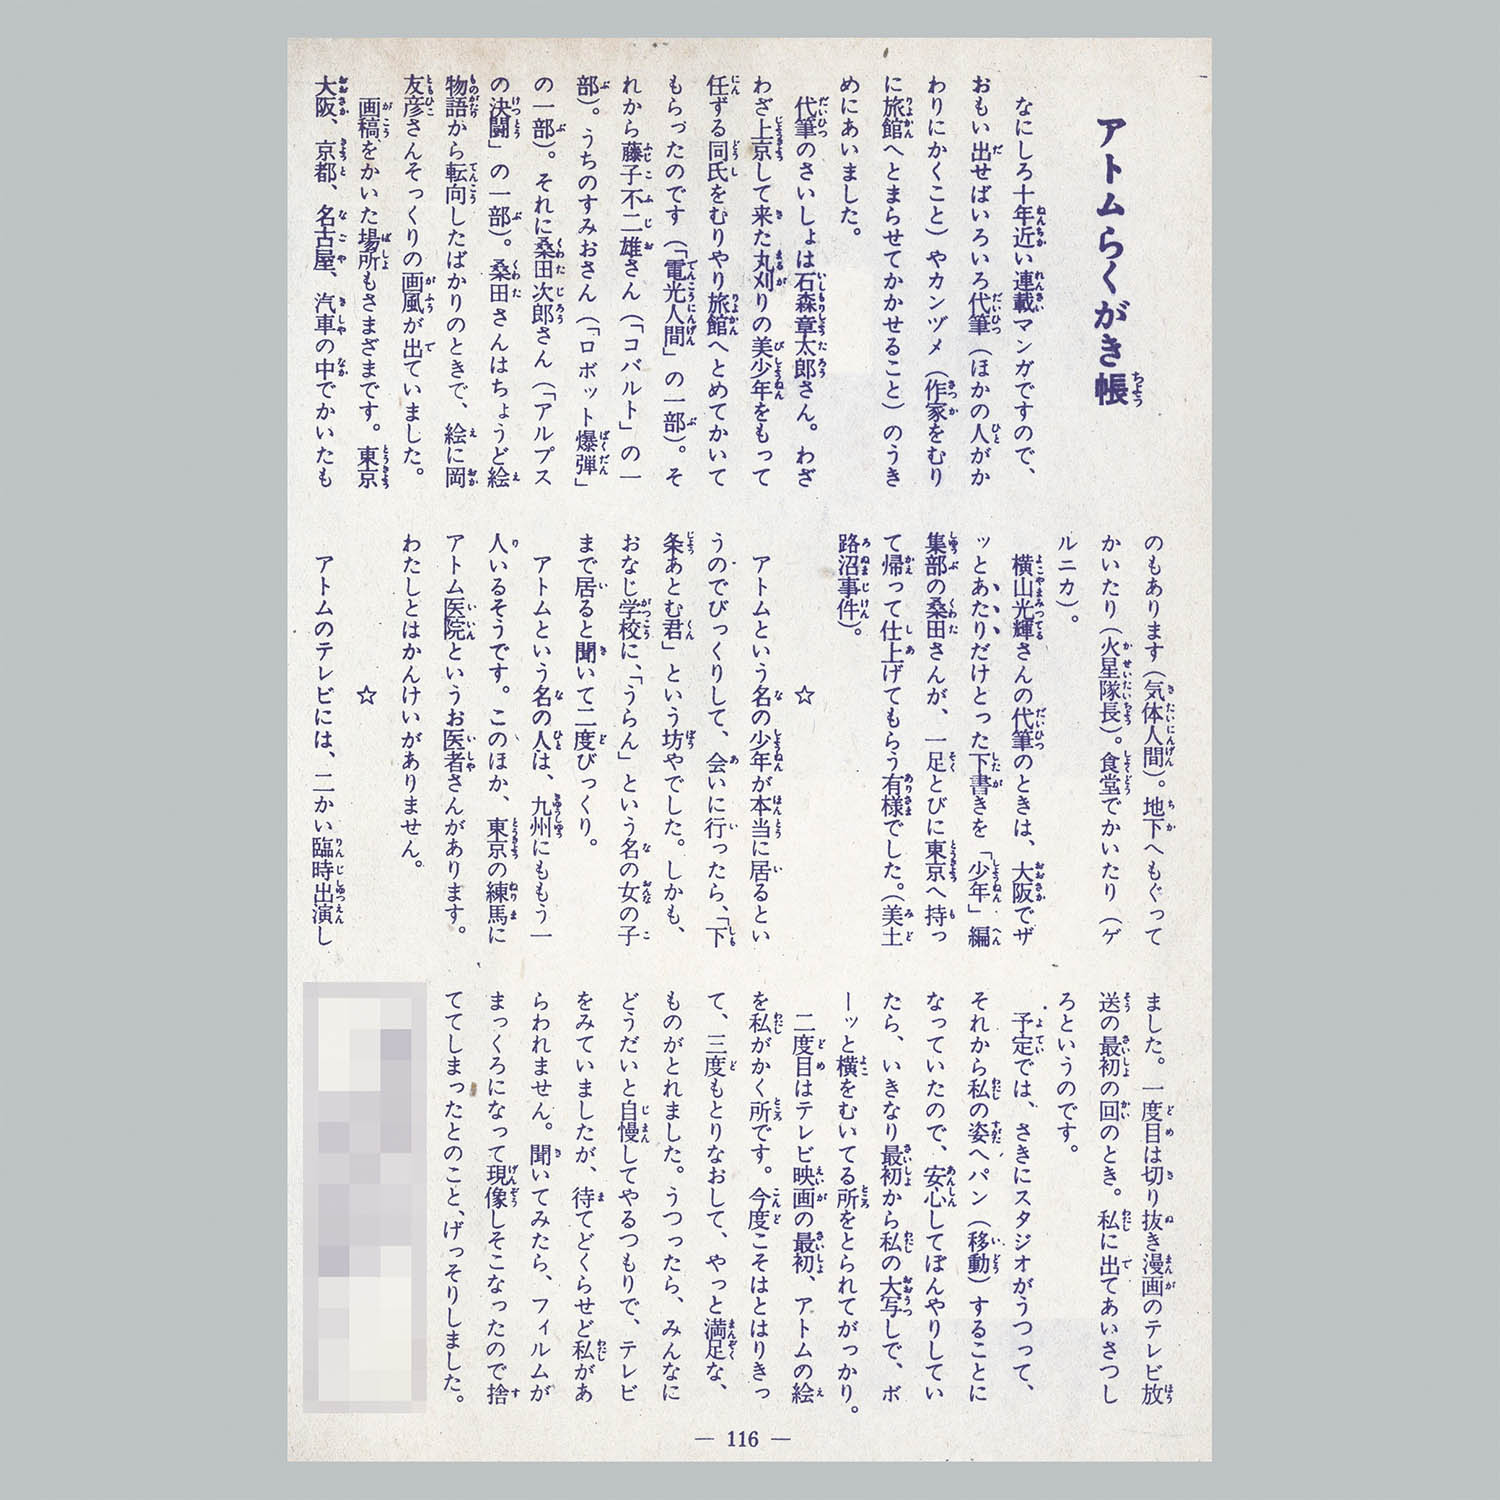 アトムらくがき帳
なにしろ十年近い連載マンガですので、
おもい出せばいろいろ代筆（ほかの人がか
わりにかくこと）やカンヅメ（作家をむり
に旅館へとまらせてかかせること）のうき
めにあいました。
代筆のさいしょは石森章太郎さん。わざ
わざ上京して来た丸刈りの美少年をもって
任ずる同氏をむりやり旅館へとめてかいて
もらったのです（「電光人間」の一部）。そ
れから藤子不二雄さん（「コバルト」の一
部）。うちのすみおさん（「ロボット爆弾」
の一部）。それに桑田次郎さん（「アルプス
の決闘」の一部）。桑田さんはちょうど絵
物語から転向したばかりのときで、絵に岡
友彦さんそっくりの画風が出ていました。
画稿をかいた場所もさまざまです。東京
大阪、京都、名古屋、汽車の中でかいたも
のもあります（気体人間）。地下へもぐって
かいたり（火星隊長）。食堂でかいたり（ゲ
ルニカ）。
横山光輝さんの代筆のときは、大阪でザ
ッとあたりだけとった下書きを「少年」編
集部の桑田さんが、一足とびに東京へ持っ
て帰って仕上げてもらう有様でした。（美土
路沼事件）。
☆
アトムという名の少年が本当に居るとい
うのでびっくりして、会いに行ったら、「下
条あとむ君」という坊やでした。しかも、
おなじ学校に、「うらん」という名の女の子
まで居ると聞いて二度びっくり。
アトムという名の人は、九州にももう一
人いるそうです。このほか、東京の練馬に
アトム医院というお医者さんがあります。
わたしとはかんけいがありません。
☆
アトムのテレビには、二かい臨時出演し
ました。一度目は切り抜き漫画のテレビ放
送の最初の回のとき。私に出てあいさつし
ろというのです。
予定では、さきにスタジオがうつって、
それから私の姿へパン（移動）することに
なっていたので、安心してぼんやりしてい
たら、いきなり最初から私の大写しで、ボ
ーッと横をむいてる所をとられてがっかり。
二度目はテレビ映画の最初、アトムの絵
を私がかく所です。今度こそはとはりきっ
て、三度もとりなおして、やっと満足な、
ものがとれました。うつったら、みんなに
どうだいと自慢してやるつもりで、テレビ
をみていましたが、待てどくらせど私があ
らわれません。聞いてみたら、フィルムが
まっくろになって現像しそこなったので捨
ててしまったとのこと、げっそりしました。
— 116 —